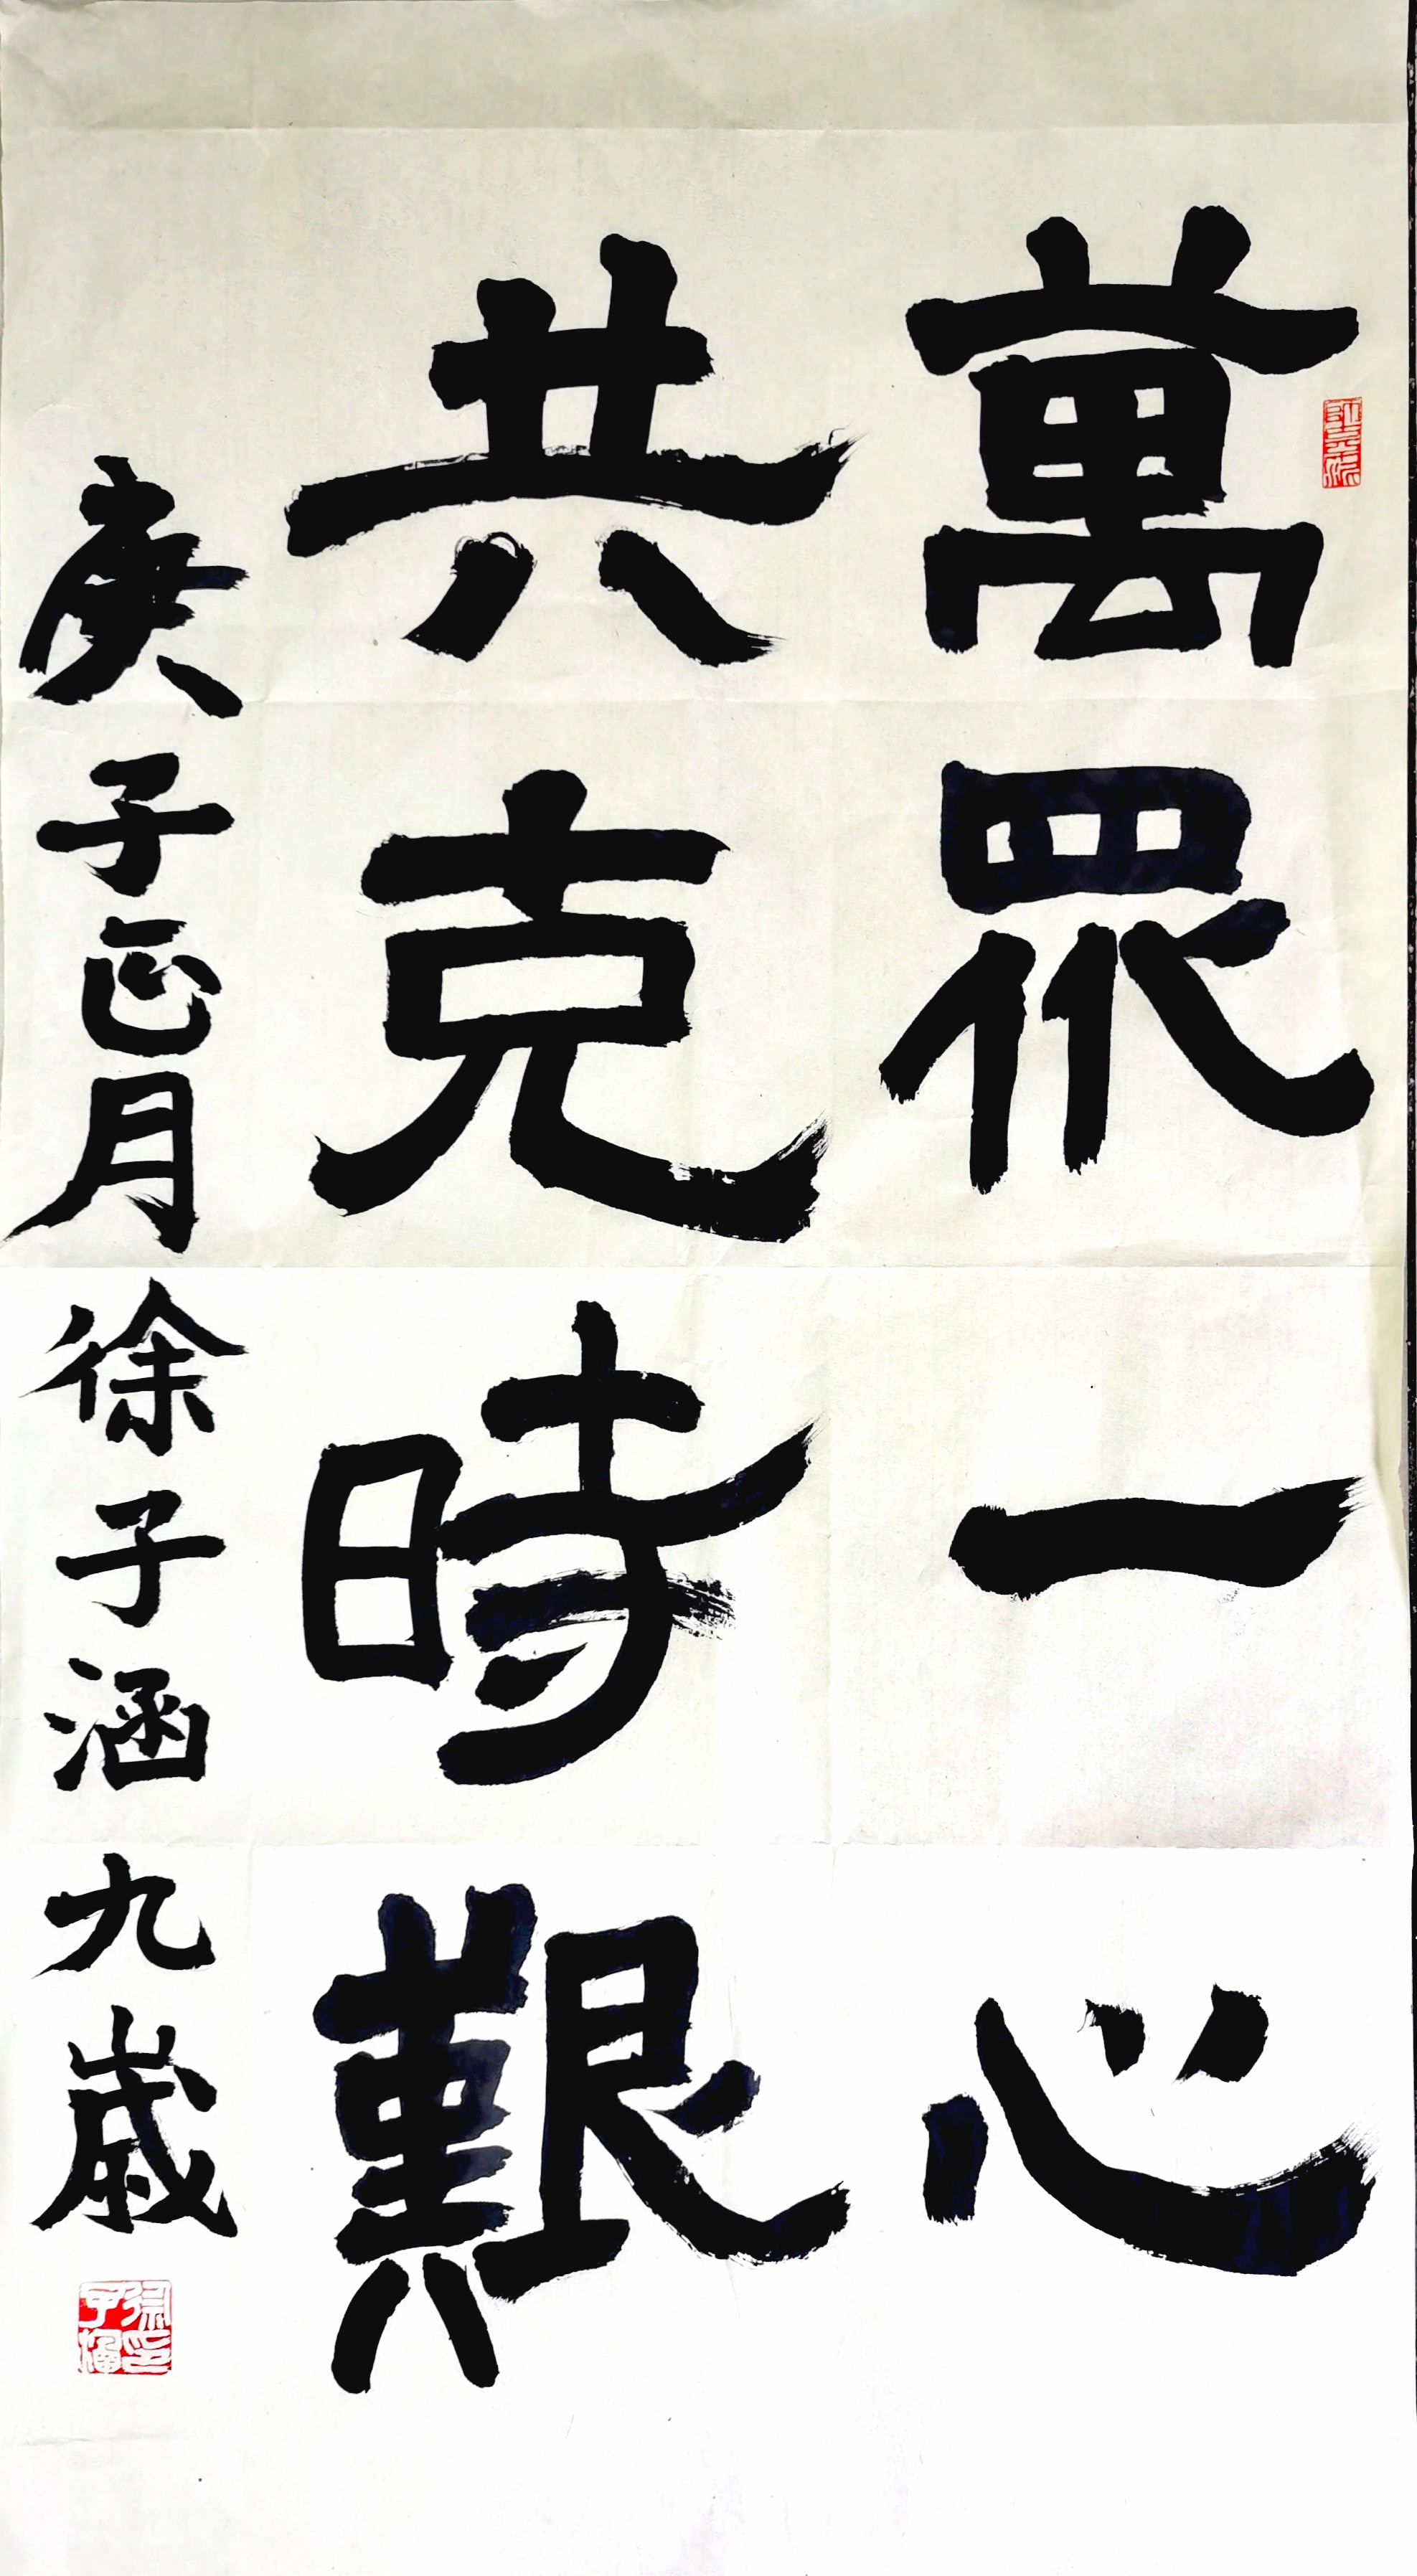 萬眾一心
共克時艱
庚子正月徐子涵九歲